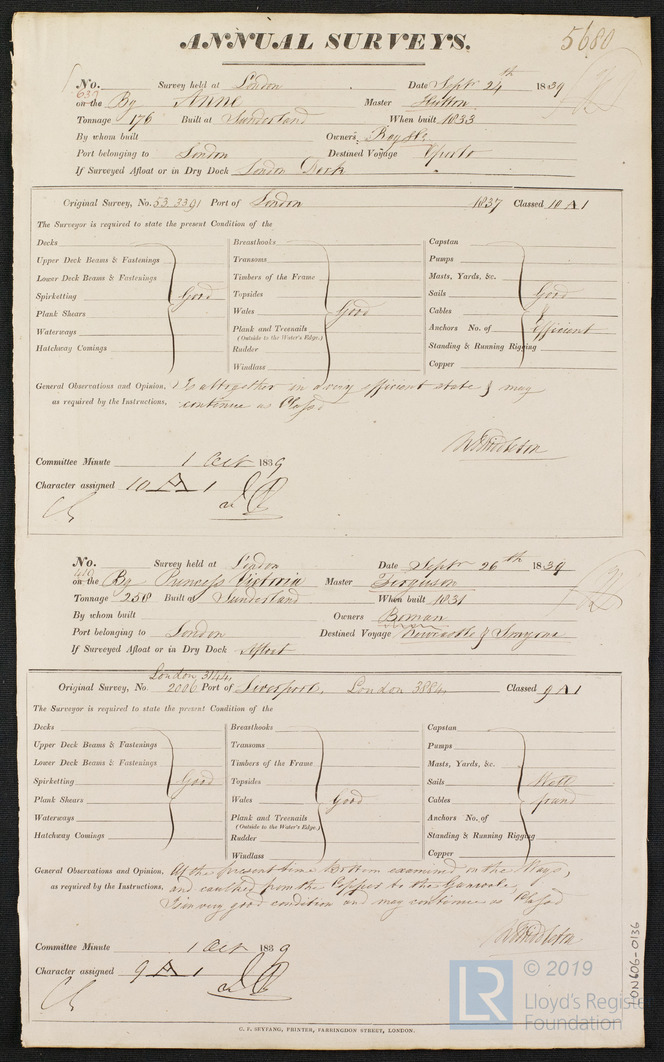 ANNUAL SURVEYS. 5680
No. 639 Survey held at London Date Septr 24th 1839
on the Bg Anne Master Hutton
Tonnage 176 Built at Sunderland When built 1833
By whom built Owners
Port belonging to London Destined Voyage Oporto
If Surveyed Afloat or in Dry Dock London Dock
Original Survey, No. 53 3391 Port of London 1837 Classed 10 A 1
The Surveyor is required to state the present Condition of the
Decks Breasthooks Capstan
Upper Deck Beams & Fastenings Transoms Pumps
Lower Deck Beams & Fastenings Timbers of the Frame Masts, Yards, &c.
Spirketting Good Topsides Sails Good
Plank Shears Wales Good Cables &
Waterways Plank and Treenails Anchors No. of Efficient
(Outside to the Water's Edge.)
Hatchway Comings Rudder Standing & Running Rigging
Windlass Copper
General Observations and Opinion, Is altogether in a very efficient state & may
as required by the Instructions, continue as Classed
Middleton
Committee Minute 1 Octr 1839
Character assigned 10 A 1
No. 410 Survey held at London Date Septr 26th 1839
on the Bg Princess Victoria Master Ferguson
Tonnage 258 Built at Sunderland When built 1831
By whom built Owners Boman
Port belonging to London Destined Voyage Newcastle & Smyrna
If Surveyed Afloat or in Dry Dock Afloat
London 3144
Original Survey, No. 2006 Port of Liverpool, London 3884 Classed 9 A 1
The Surveyor is required to state the present Condition of the
Decks Breasthooks Capstan
Upper Deck Beams & Fastenings Transoms Pumps
Lower Deck Beams & Fastenings Timbers of the Frame Masts, Yards, &c.
Spirketting Good Topsides Sails Well
Plank Shears Wales Good Cables found
Waterways Plank and Treenails Anchors No. of
(Outside to the Water's Edge.)
Hatchway Comings Rudder Standing & Running Rigging
Windlass Copper
General Observations and Opinion, At the present time Bottom examined on the Ways,
as required by the Instructions, and caulked from the Copper to the Gunwale,
Is in very good condition and may continue as Classed
Middleton
Committee Minute 1 Octr 1839
Character assigned 9 A 1
C. F. SEYFANG, PRINTER, FARRINGDON STREET, LONDON.
ON606-0136
LR © 2019
Lloyd's Register
Foundation